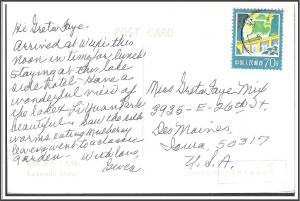 POST CARD
Hi Greta Faye.
Arrived at Wuxi this
noon in time for lunch
Staying at this lake
side hotel - Have a
wonderful view of
the lake. Li Yuan Park
beautiful. Saw the silk
worms eating Mulberry
leaves, went to a classic
Garden - With love,
Gwen.
70分
中国人民邮政
Miss Greta Faye Mix
3935 - E - 26th St.
Des Moines,
Iowa, 50317
U.S.A.